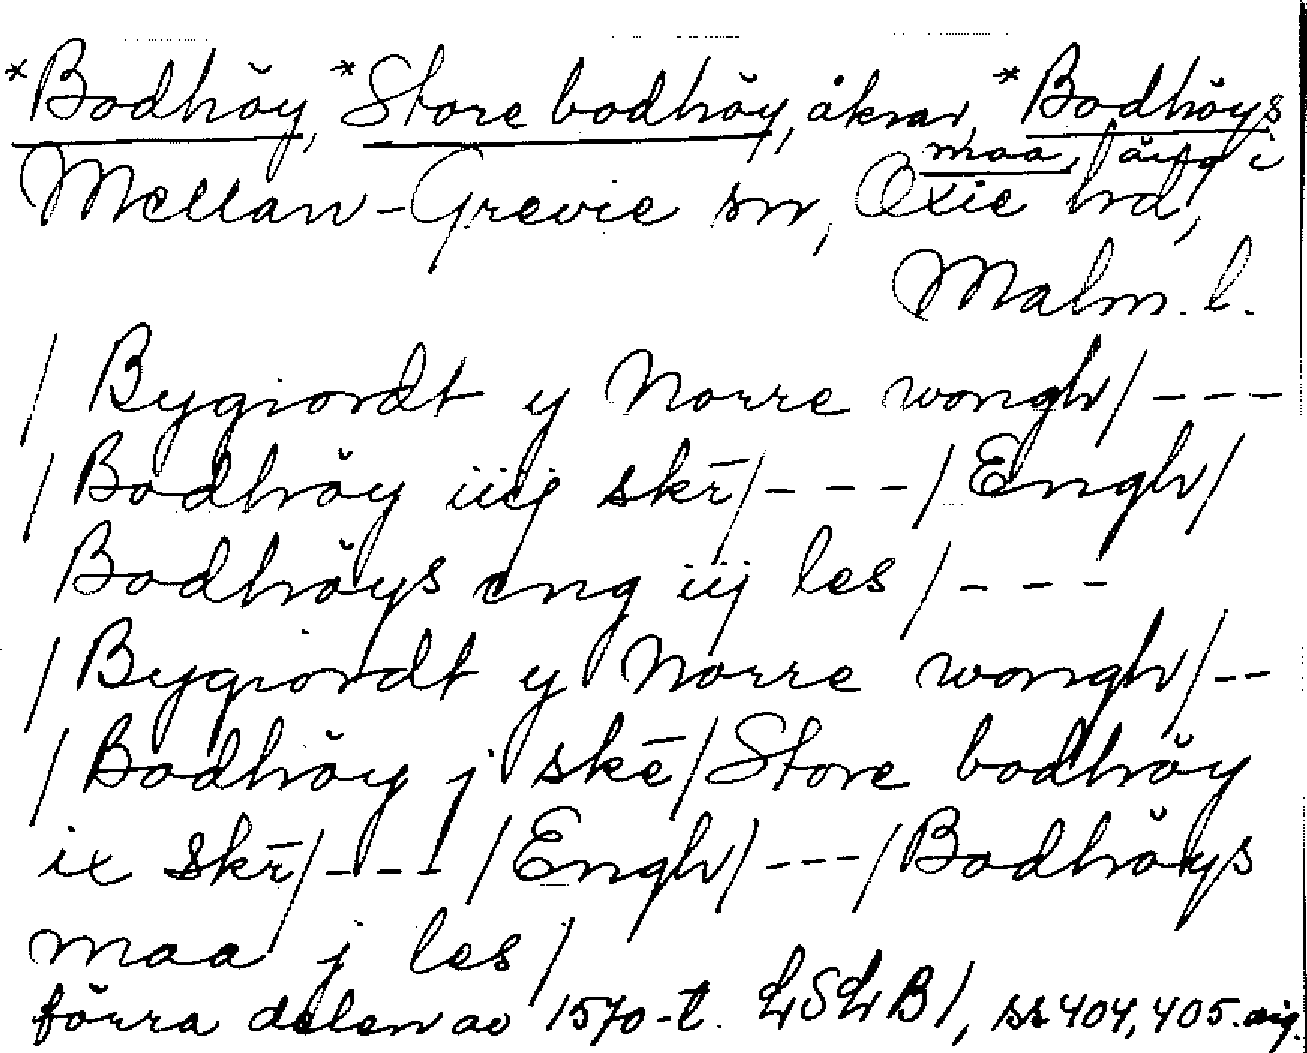 *Bodhöy, *Store bodhöy, åkrar, *Bodhöys
maa, äng i
Mellan-Grevie sn, Oxie hd,
Malm. l.
/ Bygiordt y Norre wongh/ ---
/ Bodhöy iiij skr̄/ - - - / Engh/
Bodhöys eng iij les / - - -
/ Bygiordt y Norre wongh/ --
/ Bodhöy j skē/ Store bodhöy
ix skr̄/ - - - / Engh/ --- / Bodhöys
maa j les /
förra delen av 1570-t. LSLB1, s. 404, 405.